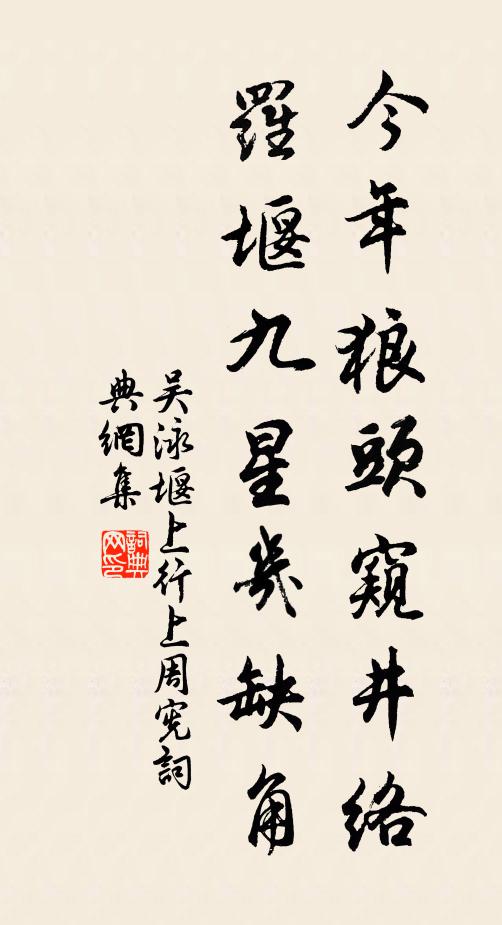 今年狼頭窺井絡
羅堰九星幾缺角
吴泳堰上行上周宪詞
典網集
詞典
网印